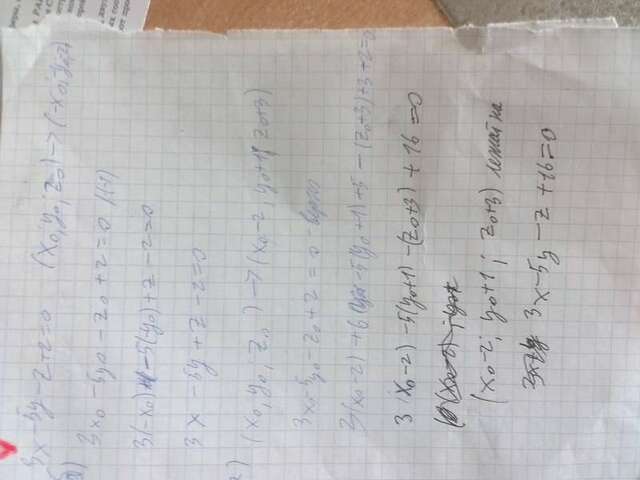 3x-5y-z+2=0 (x₀; y₀; z₀) → (-x₀; y₀; -z₀)
3x₀-5y₀-z₀+2=0 |(-1)
3(-x₀) -5(y₀)+z-2=0
3x -5y+z-2=0
(x₀; y₀; z₀) → (x₀-2; y₀+1; z₀+3)
3x₀-5y₀-z₀+2=0 верно
3(x₀-2)+6-5(y₀+1)+5-(z₀+3)+3+2=0
3(x₀-2)-5(y₀+1)-(z₀+3)+16=0
(x₀-2; y₀+1; z₀+3) лежат на
3x-5y-z+16=0